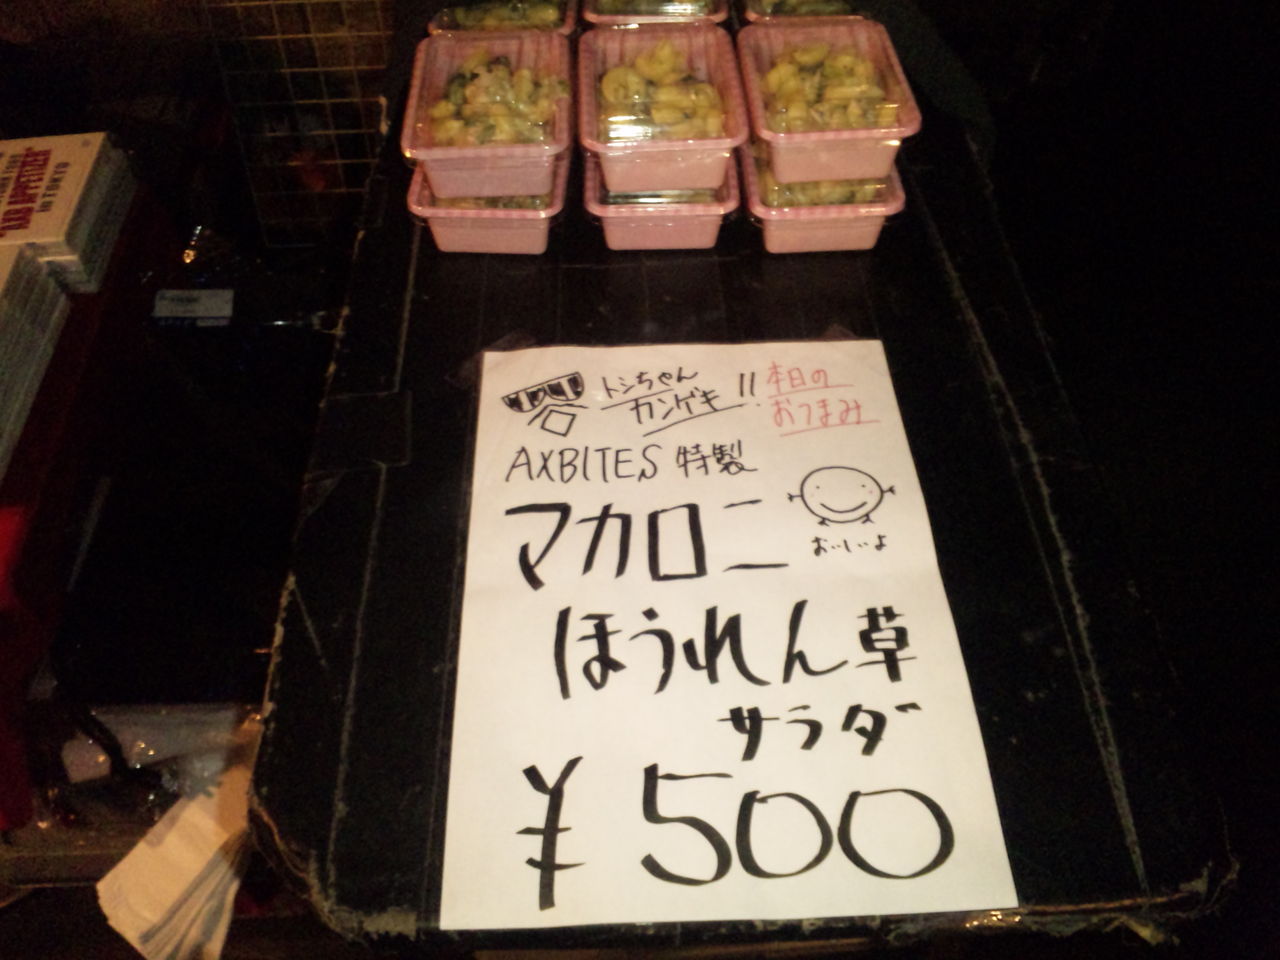 トシちゃん
カンゲキ!!
本日の
おつまみ
AXBITES 特製
マカロニ
おいしいよ
ほうれん草
サラダ
¥500
BAR APPETIZER
IN TOKYO